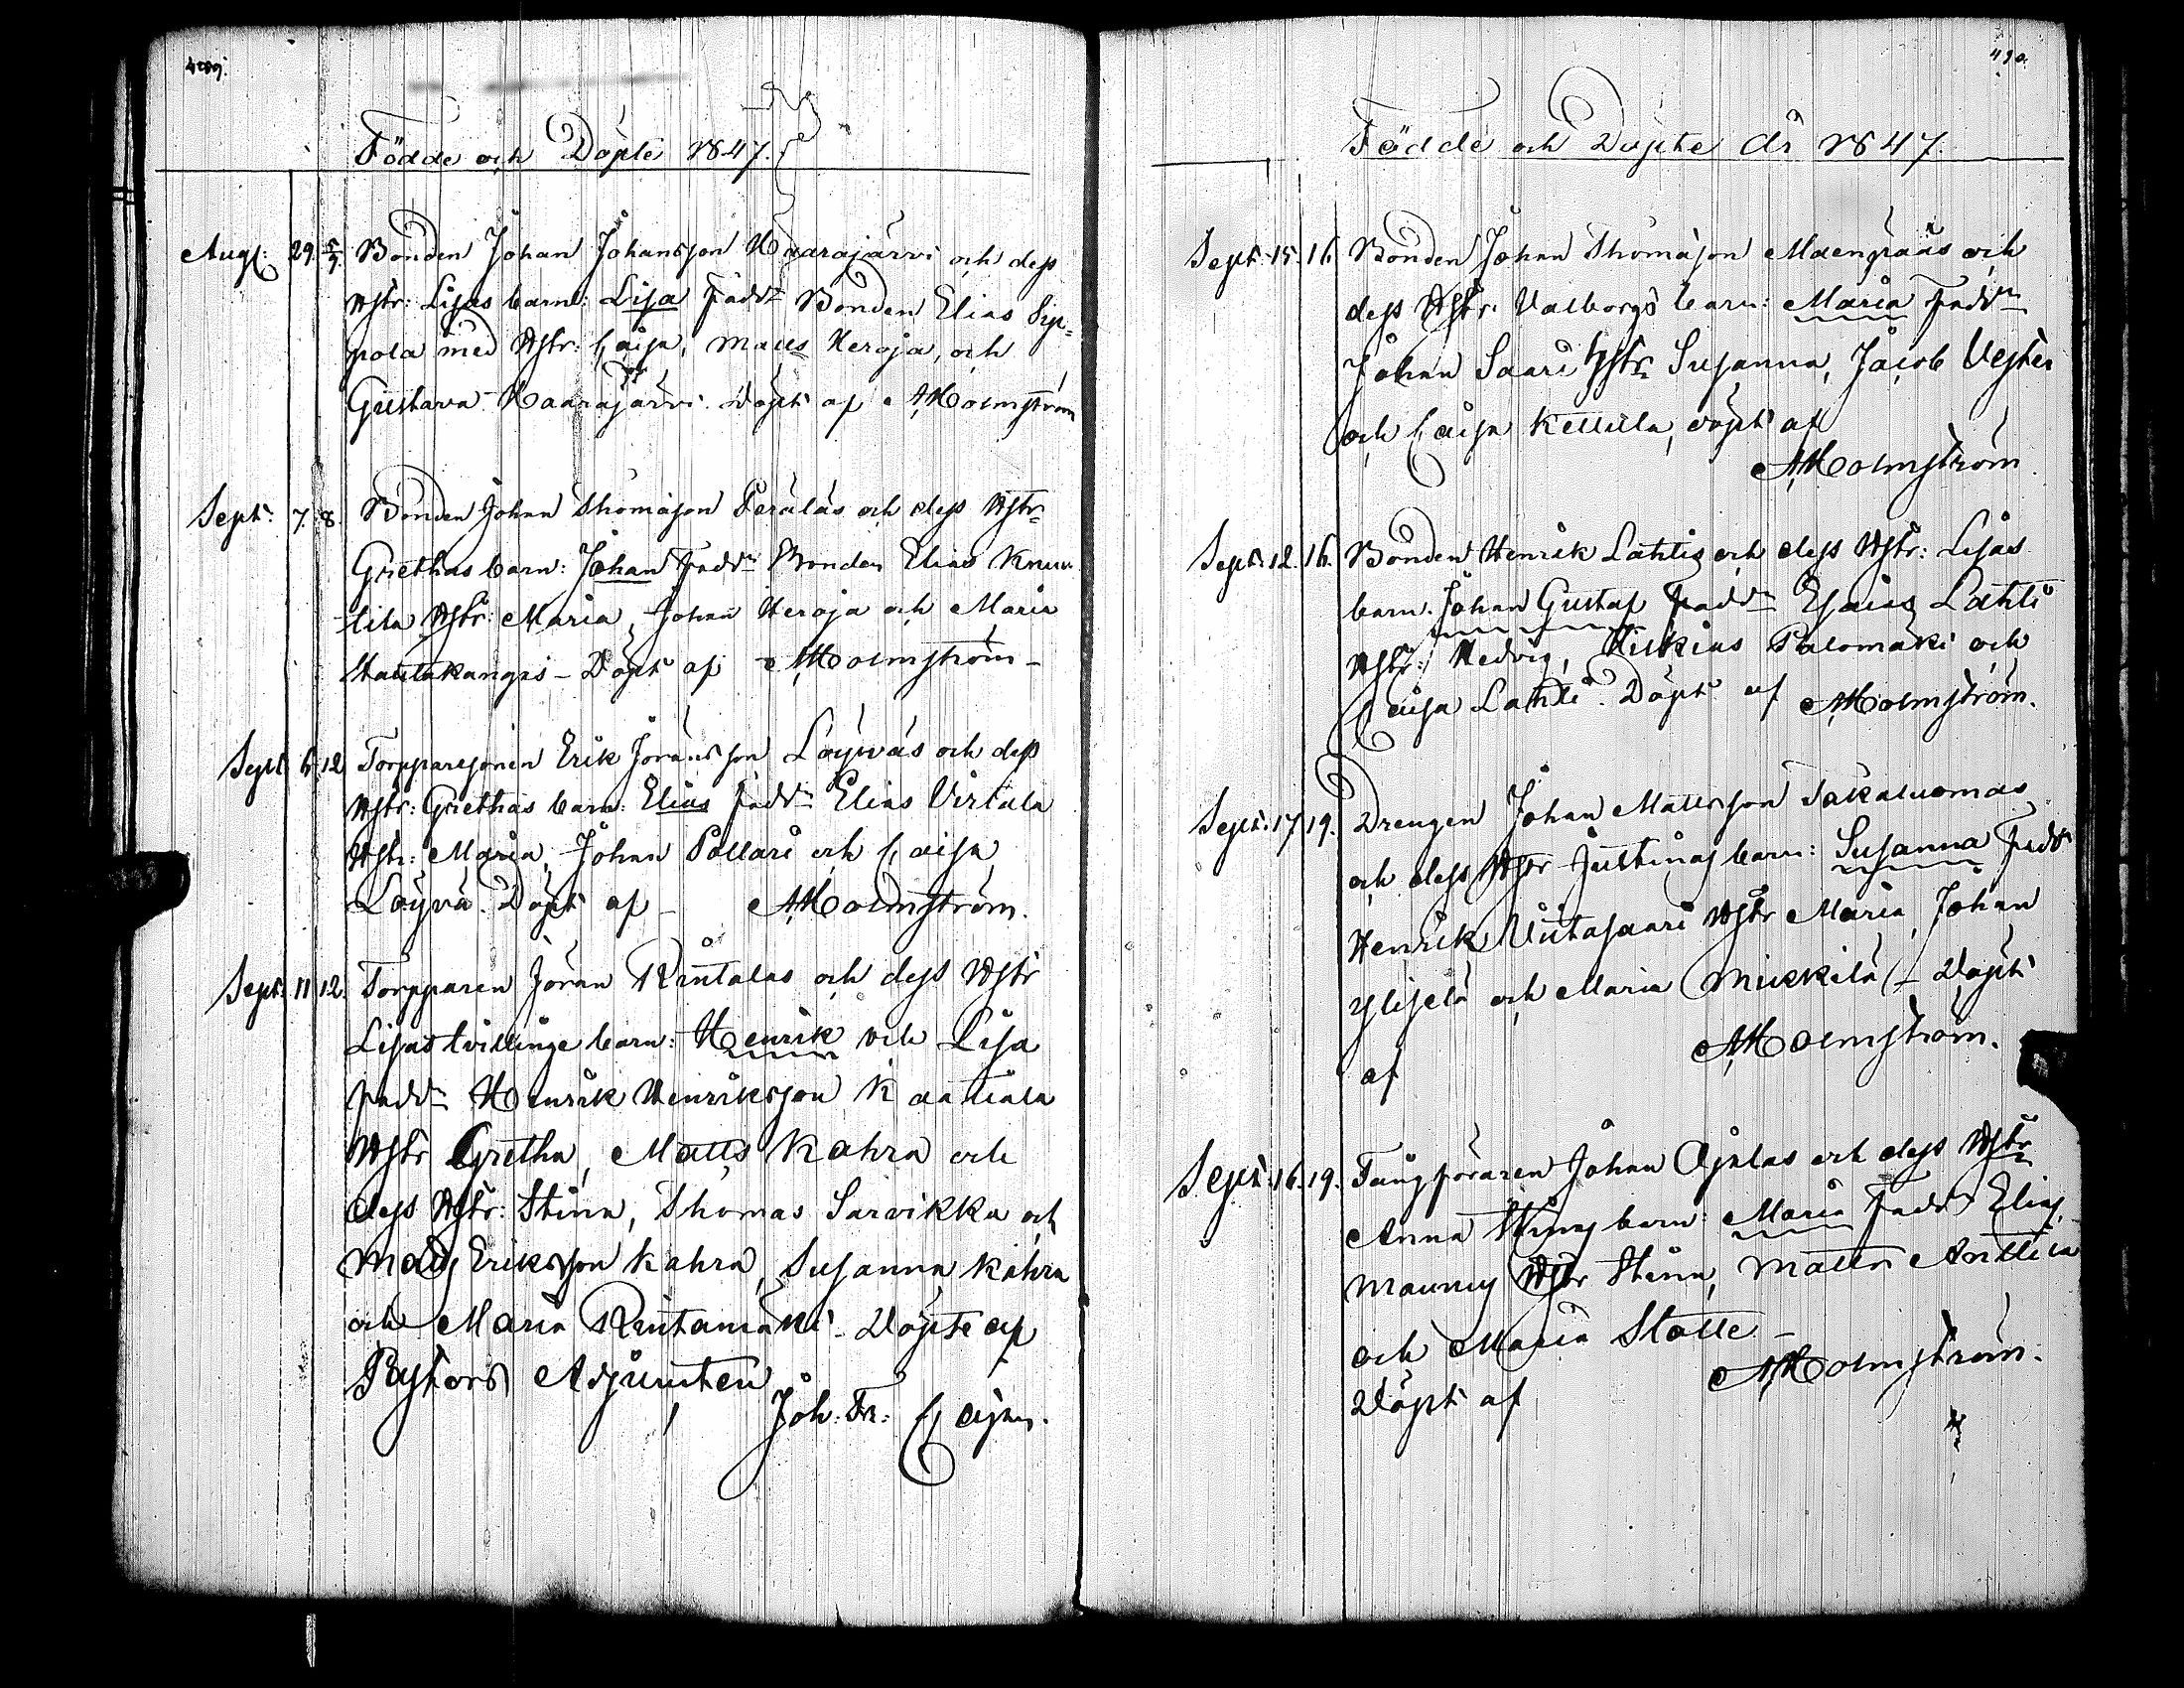 489.
Födde och Döpte 1847.
Augs: 29. 5/9. Bonden Johan Johansson Haarajärvi och dess
Hstr: Lisas barn: Lisa Fadd: Bonden Elias Sip=
pola med Hstr: Caisa, Matts Heroja, och
Gustava Haarajärvi. Döpt af AHolmström
Sept: 7. 8. Bonden Johan Thomasson Peräläs och dess Hstr
Grethas barn: Johan Fadd: Bonden Elias Knuu
tila Hstr: Maria, Johan Heroja och Maria
Hautakangas – Döpt af AHolmström –
Sept 6 12 Torpparesonen Erik Joransson Löyväs och dess
Hstr: Grethas barn: Elias Fadd: Elias Virtala
Hstr: Maria, Johan Pollari och Caisa
Löyvä. Döpt af – AHolmström.
Sept: 11 12. Torpparen Joran Rintalas och dess Hstr
Lisas tvillinge barn: Henrik och Lisa
Fadd: Henrik Henriksson Kaatiala
Hstr Gretha, Matts Kahra och
dess Hstr: Stina, Thomas Sarvikka och
Matts Eriksson Kahra, Susanna Kahra
och Maria Rintamäki – Döpte af
Pastors Adjuncten
Joh: Fr: Cajan.
490.
Födde och Döpte År 1847.
Sept: 15. 16 Bonden Johan Thomasson Maenpääs och
dess Hstr: Valborgs barn: Maria Fadd:
Johan Saari Hstr Susanna, Jacob Vester
och Caisa Kellila, döpt af
AHolmström
Sept: 12. 16. Bonden Henrik Lahtis och dess Hstr: Lisas
barn: Johan Gustaf Fadd: Esaias Lahti
Hstr: Hedvig, Hiskias Palomäki och
Caisa Lahti. Döpt af AHolmström.
Sept: 17 19. Drengen Johan Mattsson Takaluomas
och dess Hstr Justinas barn: Susanna Fadd:
Henrik Viitasaari Hstr Maria, Johan
Ylijelä och Maria Mikkilä – Döpt
af AHolmström.
Sept: 16. 19. Johan Ojalas och dess Hstr
Anna Stinas barn: Maria Fadd: Elias
Hstr Stina, Matts Anttila
och Maria Stolle –
Döpt af AHolmström.